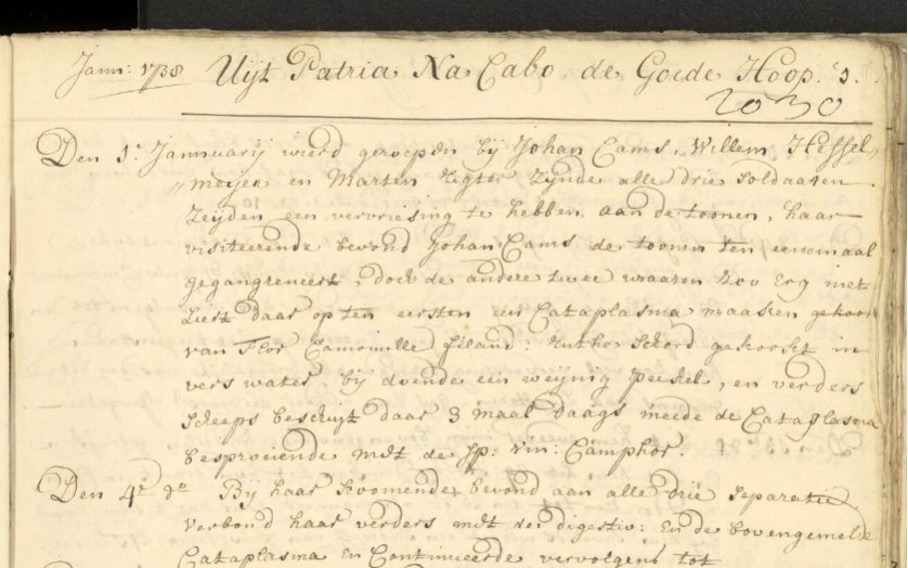 Jann: 1738 Uijt Patria Na Cabo de Goede Hoop. 3.
2030
Den 1: Jannuarij wierd geroepen bij Johan Cams, Willem Hessel„
„meijer en Marten Rigter Zijnde alle drie Soldaaten
Zeijden een vervriesing te hebben aan de toonen, haar
visiteerende bevond Johan Cams de toonen ten eenemaal
gegangreneert, doch de andere twee waaren zoo erg niet
Liet daar op ten eersten een Cataplasma maaken gekoo
van Flor Camomille Scord gekookt in
vers water bij doende een weijnig peekel, en verders
Scheeps beschuijt daar 3 maal daags meede de Cataplasma
besproeiende met de Sp: Vin: Camphor.
Den 4: do Bij haar koomende bevond aan alle drie Separatie
Verbond haar verders met de digestiv: En de bovengemelde
Cataplasma en Continueerde vervolgens tot